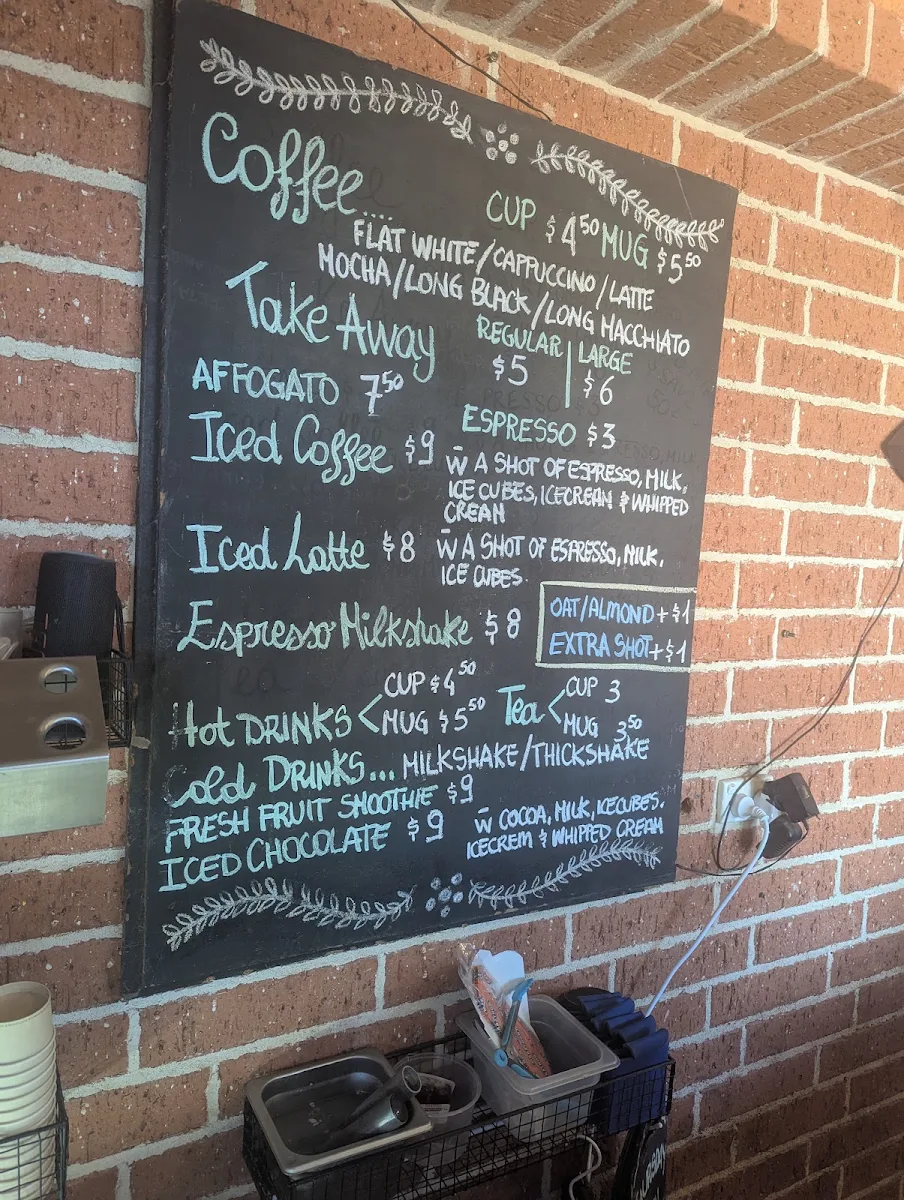 Coffee.....
CUP $4.50 MUG $5.50
FLAT WHITE/CAPPUCCINO/LATTE
MOCHA/LONG BLACK/LONG MACCHIATO
Take Away
REGULAR | LARGE
$5 $6
AFFOGATO 7.50
ESPRESSO $3
Iced Coffee $9
W A SHOT OF ESPRESSO, MILK,
ICE CUBES, ICECREAM & WHIPPED
CREAM
Iced Latte $8 W A SHOT OF ESPRESSO, MILK,
ICE CUBES
OAT/ALMOND + $1
Espresso Milkshake $8
EXTRA SHOT + $1
Hot DRINKS < CUP $4.50
MUG $5.50
Tea < CUP 3
MUG 3.50
Cold DRINKS... MILKSHAKE/THICKSHAKE
FRESH FRUIT SMOOTHIE $9
ICED CHOCOLATE $9
W COCOA, MILK, ICECUBES.
ICECREM & WHIPPED CREAM